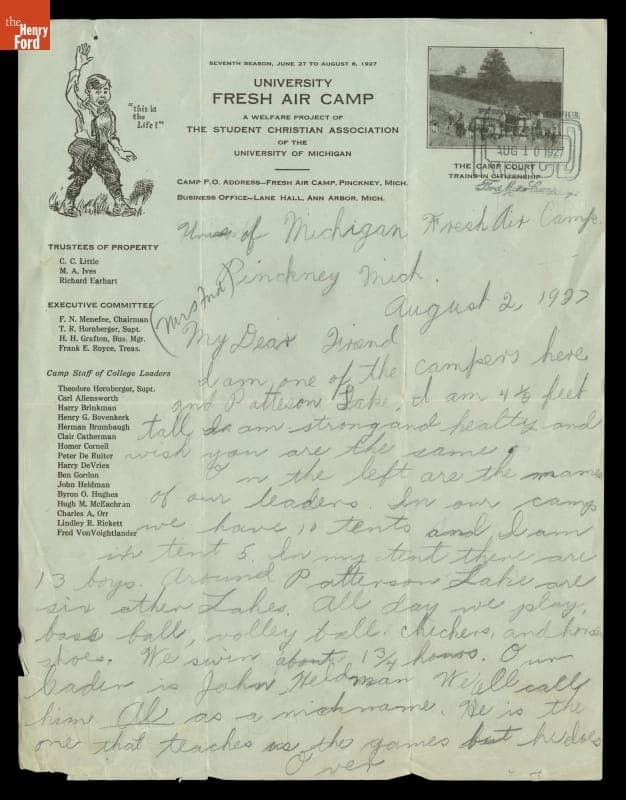 the
Henry
Ford
SEVENTH SEASON, JUNE 27 TO AUGUST 6, 1927
UNIVERSITY
FRESH AIR CAMP
A WELFARE PROJECT OF
THE STUDENT CHRISTIAN ASSOCIATION
OF THE
UNIVERSITY OF MICHIGAN
CAMP P.O. ADDRESS—FRESH AIR CAMP, PINCKNEY, MICH.
BUSINESS OFFICE—LANE HALL, ANN ARBOR, MICH.
"this is
the
Life!"
AUG 10 1927
THE CAMP COURT
TRAINS IN CITIZENSHIP
TRUSTEES OF PROPERTY
C. C. Little
M. A. Ives
Richard Earhart
EXECUTIVE COMMITTEE
F. N. Menefee, Chairman
T. R. Hornberger, Supt.
H. H. Grafton, Bus. Mgr.
Frank E. Royce, Treas.
Camp Staff of College Leaders
Theodore Hornberger, Supt.
Carl Allensworth
Harry Brinkman
Henry G. Bovenkerk
Herman Brumbaugh
Clair Catherman
Homer Cornell
Peter De Ruiter
Harry DeVries
Ben Gordon
John Heldman
Byron O. Hughes
Hugh M. McEachran
Charles A. Orr
Lindley R. Rickett
Fred VonVoightlander
of Michigan Fresh Air Camp.
Pinckney Mich.
August 2, 1927
My Dear Friend
I am one of the campers here
and Patteson Lake, I am 4 1/2 feet
tall I am strong and healty and
wish you are the same.
In the left are the names
of our leaders In our camp
we have 10 tents and, I am
in tent 5. In my tent there are
13 boys. Around Patterson Lake are
six other Lakes. All day we play,
base ball, volley ball. checkers, and horse
shoes. We swim about 1 3/4 hours. Our
leader is John Heldman We all call
him Al as a nickname. He is the
one that teaches us the games but he does
Over